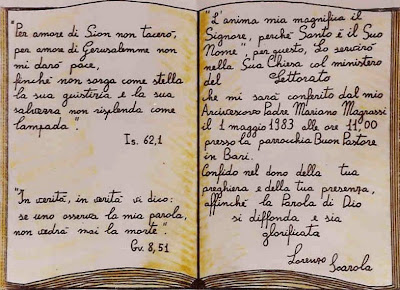 "Per amore di Sion non tacerò,
per amore di Gerusalemme non
mi darò pace,
finché non sorga come stella
la sua giustizia e la sua
salvezza non risplenda come
lampada".
Is. 62,1
"In verità, in verità vi dico:
se uno osserva la mia parola,
non vedrà mai la morte".
Gv. 8,51
"L'anima mia magnifica il
Signore, perché Santo è il Suo
Nome", per questo, Lo servirò
nella Sua Chiesa col ministero
del Lettorato
che mi sarà conferito dal mio
Arcivescovo Padre Mariano Magrassi
il 1 maggio 1983 alle ore 11,00
presso la parrocchia Buon Pastore
in Bari.
Confido nel dono della tua
preghiera e della tua presenza,
affinché la Parola di Dio
si diffonda e sia
glorificata
Lorenzo
Scarola